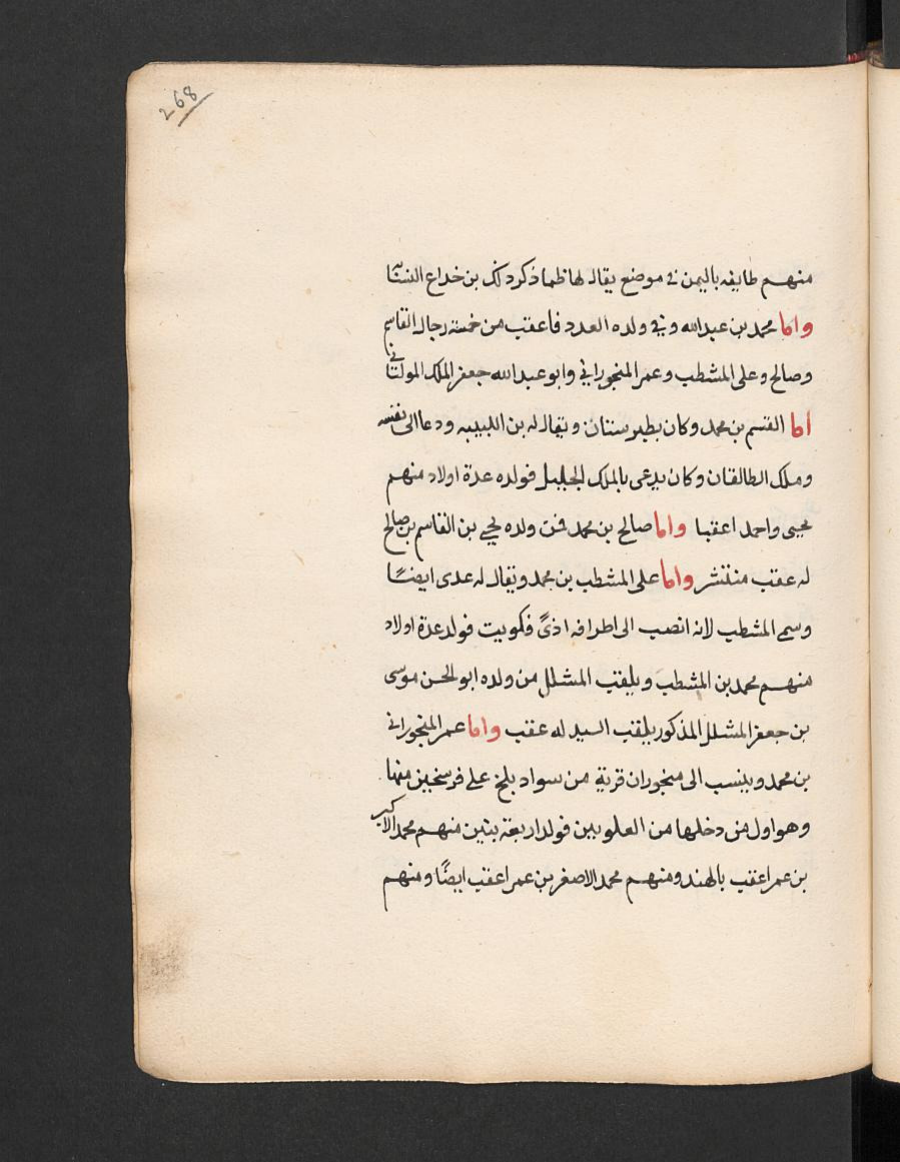 268
منهم طايفه باليمن في موضع يقال لها ظما ذكر ذلك بن خداع النسابه
واما محمد بن عبدالله وفي ولده العدد فاعقب من خمسة رجال القاسم
وصالح وعلى المشطب وعمر المنجوراني وابو عبدالله جعفر الملك المولتاني
اما القسم بن محمد وكان بطبرستان ويقال له بن اللبيبه ودعا الى نفسه
وملك الطالقان وكان يدعى بالملك الجليل فولده عدة اولاد منهم
يحيى واحمد اعقبا واما صالح بن محمد فمن ولده يحيى بن القاسم بن صالح
له عقب منتشر واما على المشطب بن محمد ويقال له عدى ايضًا
وسمى المشطب لانه انصب الى اطرافه اذىً فكويت فولد عدة اولاد
منهم محمد بن المشطب ويلقب المشلل من ولده ابو الحسن موسى
بن جعفر المشلل المذكور يلقب السيد له عقب واما عمر المنجوراني
بن محمد وينسب الى منجوران قرية من سواد بلخ على فرسخين منها
وهو اول من دخلها من العلويين فولد اربعة بنين منهم محمد الاكبر
بن عمر اعقب بالهند ومنهم محمد الاصغر بن عمر اعقب ايضًا ومنهم